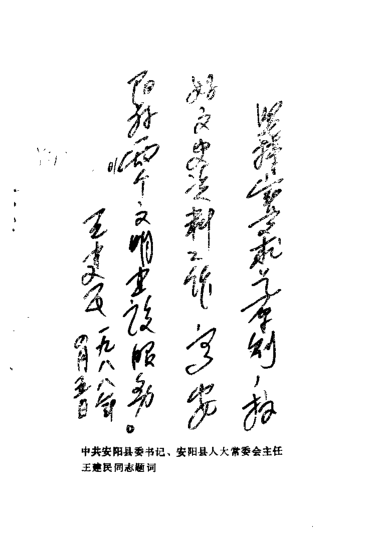 坚持实事求是原则，搞
好文史资料工作，为安
阳县两个文明建设服务。
王建民 一九八八年
四月五日
中共安阳县委书记、安阳县人大常委会主任
王建民同志题词